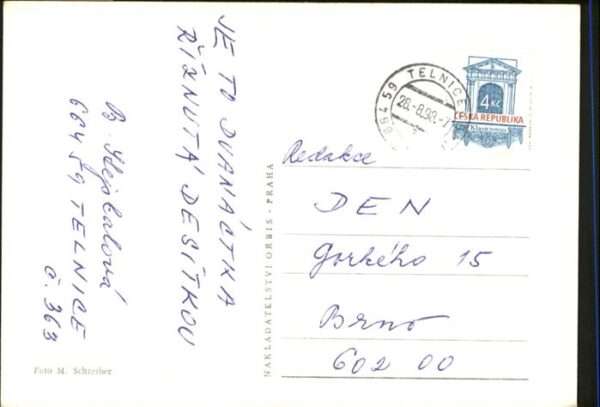 JE TO DVANÁCTKA
ŘÍZNUTÁ DESÍTKOU
664 59 TELNICE
č. 363
Foto M. Schreiber
NAKLADATELSTVÍ ORBIS - PRAHA
664 59 TELNICE
4 Kč
ČESKÁ REPUBLIKA
Klasicismus
Redakce
DEN
Gorkého 15
Brno
602 00